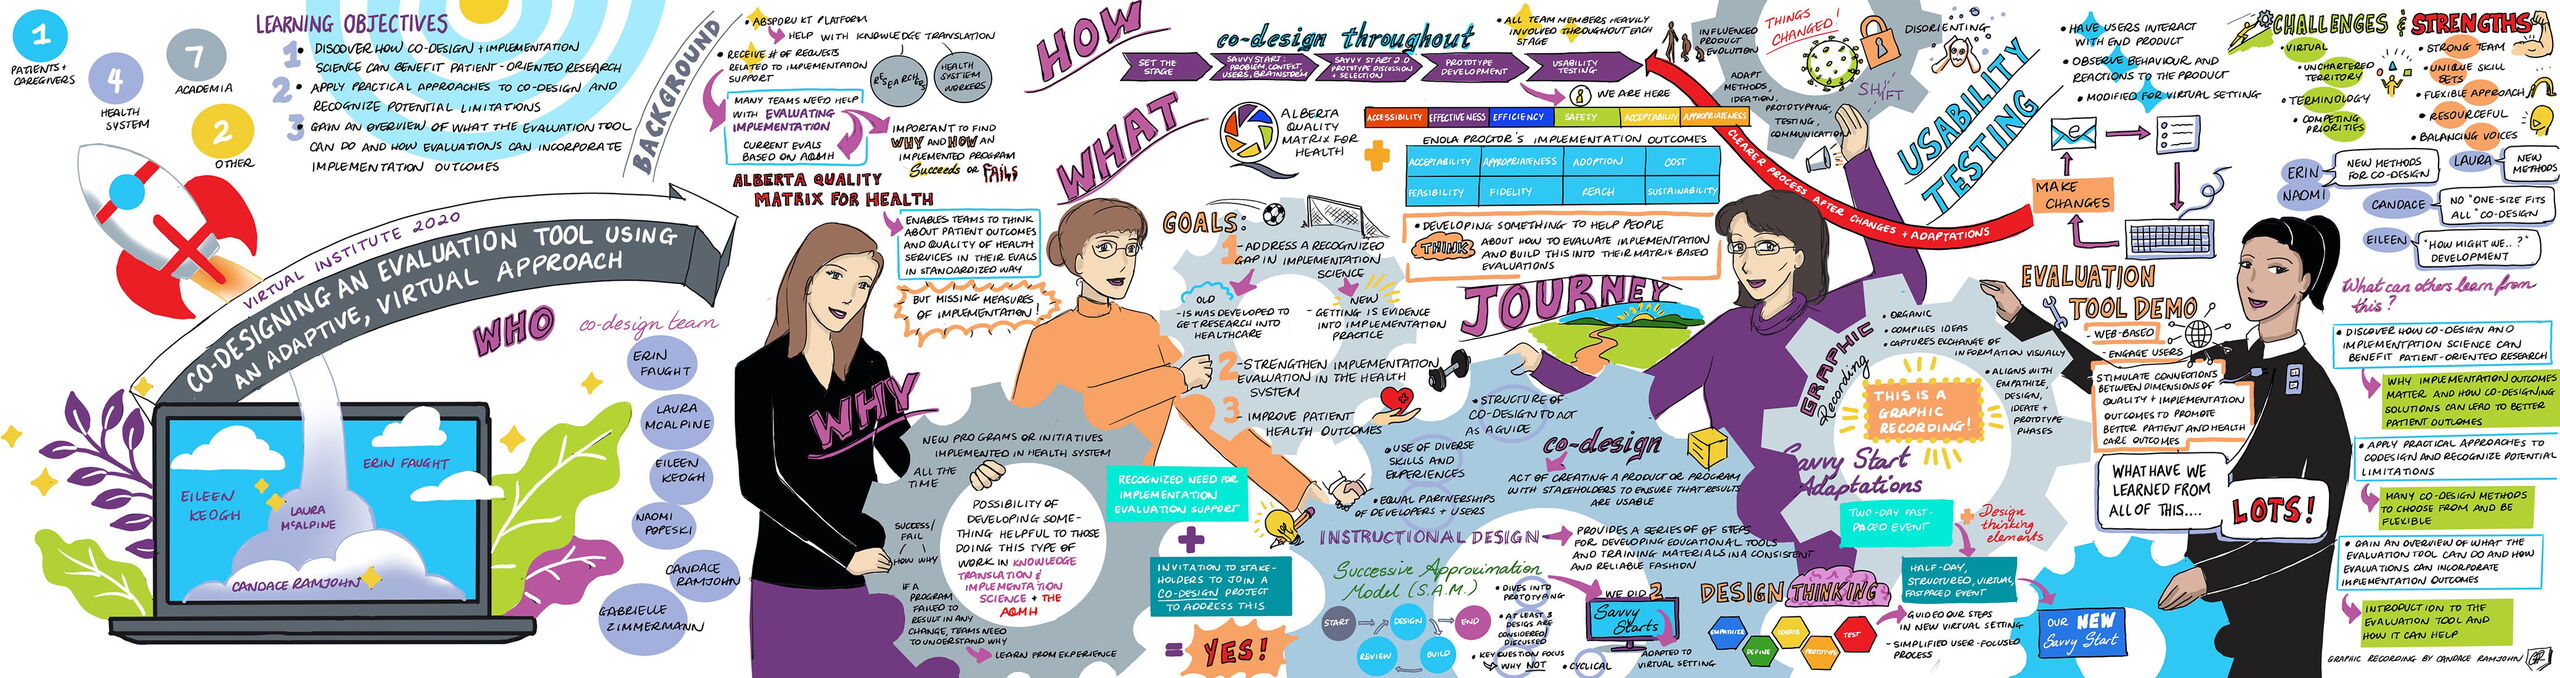 1
PATIENTS +
CAREGIVERS
4
HEALTH
SYSTEM
7
ACADEMIA
2
OTHER
LEARNING OBJECTIVES
1 • DISCOVER HOW CO-DESIGN + IMPLEMENTATION
SCIENCE CAN BENEFIT PATIENT-ORIENTED RESEARCH
2 • APPLY PRACTICAL APPROACHES TO CO-DESIGN AND
RECOGNIZE POTENTIAL LIMITATIONS
3 • GAIN AN OVERVIEW OF WHAT THE EVALUATION TOOL
CAN DO AND HOW EVALUATIONS CAN INCORPORATE
IMPLEMENTATION OUTCOMES
VIRTUAL INSTITUTE 2020
CO-DESIGNING AN EVALUATION TOOL USING
AN ADAPTIVE, VIRTUAL APPROACH
EILEEN
KEOGH
LAURA
MCALPINE
ERIN FAUGHT
CANDACE RAMJOHN
WHO
co-design team
ERIN
FAUGHT
LAURA
MCALPINE
EILEEN
KEOGH
NAOMI
POPESKI
CANDACE
RAMJOHN
GABRIELLE
ZIMMERMANN
BACKGROUND
• ABSPORU KT PLATFORM
HELP WITH KNOWLEDGE TRANSLATION
RESEARCHERS
HEALTH
SYSTEM
WORKERS
• RECEIVE # OF REQUESTS
RELATED TO IMPLEMENTATION
SUPPORT
MANY TEAMS NEED HELP
WITH EVALUATING
IMPLEMENTATION
CURRENT EVALS
BASED ON AQMH
IMPORTANT TO FIND
WHY AND HOW AN
IMPLEMENTED PROGRAM
Succeeds OR FAILS
ALBERTA QUALITY
MATRIX FOR HEALTH
ENABLES TEAMS TO THINK
ABOUT PATIENT OUTCOMES
AND QUALITY OF HEALTH
SERVICES IN THEIR EVALS
IN STANDARDIZED WAY
BUT MISSING MEASURES
OF IMPLEMENTATION!
WHY
NEW PROGRAMS OR INITIATIVES
IMPLEMENTED IN HEALTH SYSTEM
ALL THE
TIME
SUCCESS/
FAIL
HOW WHY
IF A
PROGRAM
FAILED TO
RESULT IN ANY
CHANGE, TEAMS NEED
TO UNDERSTAND WHY
LEARN FROM EXPERIENCE
POSSIBILITY OF
DEVELOPING SOME-
THING HELPFUL TO THOSE
DOING THIS TYPE OF
WORK IN KNOWLEDGE
TRANSLATION &
IMPLEMENTATION
SCIENCE + THE
AQMH
RECOGNIZED NEED FOR
IMPLEMENTATION
EVALUATION SUPPORT
+
INVITATION TO STAKE-
HOLDERS TO JOIN A
CO-DESIGN PROJECT
TO ADDRESS THIS
=
YES!
HOW
co-design throughout
• ALL TEAM MEMBERS HEAVILY
INVOLVED THROUGHOUT EACH
STAGE
SET THE
STAGE
SAVVY START:
PROBLEM, CONTEXT,
USERS, BRAINSTORM
SAVVY START 2.0
PROTOTYPE DISCUSSION
+ SELECTION
PROTOTYPE
DEVELOPMENT
USABILITY
TESTING
WE ARE HERE
WHAT
ALBERTA
QUALITY
MATRIX FOR
HEALTH
ACCESSIBILITY
EFFECTIVENESS
EFFICIENCY
SAFETY
ACCEPTABILITY
APPROPRIATENESS
+
ENOLA PROCTOR'S IMPLEMENTATION OUTCOMES
ACCEPTABILITY
APPROPRIATENESS
ADOPTION
COST
FEASIBILITY
FIDELITY
REACH
SUSTAINABILITY
• DEVELOPING SOMETHING TO HELP PEOPLE
THINK ABOUT HOW TO EVALUATE IMPLEMENTATION
AND BUILD THIS INTO THEIR MATRIX BASED
EVALUATIONS
GOALS:
1 - ADDRESS A RECOGNIZED
GAP IN IMPLEMENTATION
SCIENCE
OLD
- IS WAS DEVELOPED TO
GET RESEARCH INTO
HEALTHCARE
NEW
- GETTING IS EVIDENCE
INTO IMPLEMENTATION
PRACTICE
2 - STRENGTHEN IMPLEMENTATION
EVALUATION IN THE HEALTH
SYSTEM
3 - IMPROVE PATIENT
HEALTH OUTCOMES
JOURNEY
• STRUCTURE OF
CO-DESIGN TO ACT
AS A GUIDE
• USE OF DIVERSE
SKILLS AND
EXPERIENCES
• EQUAL PARTNERSHIPS
OF DEVELOPERS + USERS
co-design
ACT OF CREATING A PRODUCT OR PROGRAM
WITH STAKEHOLDERS TO ENSURE THAT RESULTS
ARE USABLE
INSTRUCTIONAL DESIGN
PROVIDES A SERIES OF STEPS
FOR DEVELOPING EDUCATIONAL TOOLS
AND TRAINING MATERIALS IN A CONSISTENT
AND RELIABLE FASHION
Successive Approximation
Model (S.A.M.)
START
DESIGN
END
REVIEW
BUILD
• DIVES INTO
PROTOTYPING
• AT LEAST 3
DESIGNS ARE
CONSIDERED/
DISCUSSED
• KEY QUESTION FOCUS
WHY NOT
• CYCLICAL
WE DID 2
Savvy
Starts
ADAPTED TO
VIRTUAL SETTING
DESIGN THINKING
EMPATHIZE
DEFINE
IDEATE
PROTOTYPE
TEST
- GUIDED OUR STEPS
IN NEW VIRTUAL SETTING
- SIMPLIFIED USER-FOCUSED
PROCESS
INFLUENCED
PRODUCT
EVOLUTION
THINGS
CHANGED!
DISORIENTING
SHIFT
ADAPT
METHODS,
IDEATION,
PROTOTYPING,
TESTING,
COMMUNICATION
CLEARER PROCESS AFTER CHANGES + ADAPTATIONS
GRAPHIC
Recording
• ORGANIC
• COMPILES IDEAS
• CAPTURES EXCHANGE OF
INFORMATION VISUALLY
• ALIGNS WITH
EMPATHIZE,
DESIGN,
IDEATE +
PROTOTYPE
PHASES
THIS IS A
GRAPHIC
RECORDING!
Savvy Start
Adaptations
TWO-DAY FAST-
PACED EVENT
+ Design
thinking
elements
HALF-DAY,
STRUCTURED, VIRTUAL,
FASTPACED EVENT
OUR NEW
Savvy Start
USABILITY
TESTING
• HAVE USERS INTERACT
WITH END PRODUCT
• OBSERVE BEHAVIOUR AND
REACTIONS TO THE PRODUCT
• MODIFIED FOR VIRTUAL SETTING
MAKE
CHANGES
EVALUATION
TOOL DEMO
- WEB-BASED
- ENGAGE USERS
STIMULATE CONNECTIONS
BETWEEN DIMENSIONS OF
QUALITY + IMPLEMENTATION
OUTCOMES TO PROMOTE
BETTER PATIENT AND HEALTH
CARE OUTCOMES
WHAT HAVE WE
LEARNED FROM
ALL OF THIS....
LOTS!
CHALLENGES & STRENGTHS
• VIRTUAL
• UNCHARTERED
TERRITORY
• TERMINOLOGY
• COMPETING
PRIORITIES
• STRONG TEAM
• UNIQUE SKILL
SETS
• FLEXIBLE APPROACH
• RESOURCEFUL
• BALANCING VOICES
ERIN
NAOMI
NEW METHODS
FOR CO-DESIGN
LAURA
NEW
METHODS
CANDACE
NO "ONE-SIZE FITS
ALL" CO-DESIGN
EILEEN
"HOW MIGHT WE..?"
DEVELOPMENT
What can others learn from
this?
• DISCOVER HOW CO-DESIGN AND
IMPLEMENTATION SCIENCE CAN
BENEFIT PATIENT-ORIENTED RESEARCH
WHY IMPLEMENTATION OUTCOMES
MATTER AND HOW CO-DESIGNING
SOLUTIONS CAN LEAD TO BETTER
PATIENT OUTCOMES
• APPLY PRACTICAL APPROACHES TO
CODESIGN AND RECOGNIZE POTENTIAL
LIMITATIONS
MANY CO-DESIGN METHODS
TO CHOOSE FROM AND BE
FLEXIBLE
• GAIN AN OVERVIEW OF WHAT THE
EVALUATION TOOL CAN DO AND HOW
EVALUATIONS CAN INCORPORATE
IMPLEMENTATION OUTCOMES
INTRODUCTION TO THE
EVALUATION TOOL AND
HOW IT CAN HELP
GRAPHIC RECORDING BY CANDACE RAMJOHN